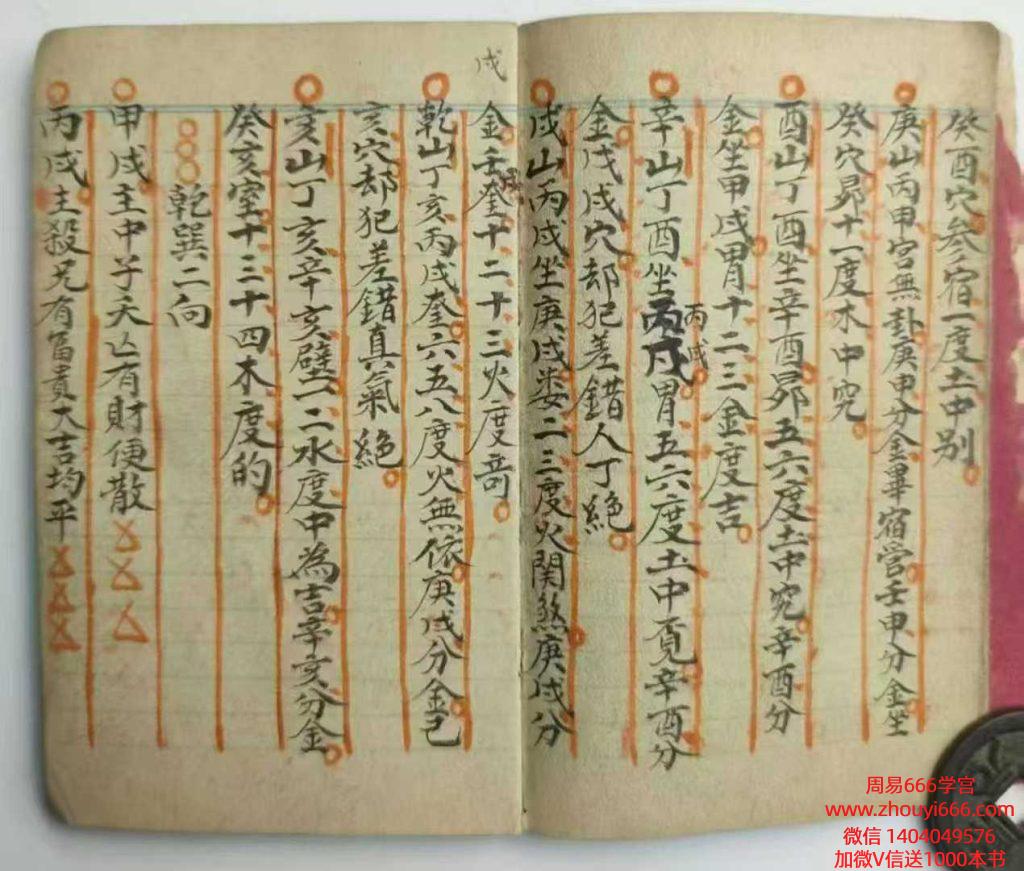 癸酉穴參宿一度土中別
庚山丙甲宮無卦庚申分金畢宿管壬申分金坐
癸穴昴十一度木中究
酉山丁酉坐辛酉昴五六度土中究辛酉分
金坐甲戌胃十二三金度吉
辛山丁酉坐丙戌胃五六度土中覓辛酉分
丙戌
金戊戌穴却犯差錯人丁絕
戌山丙戌坐庚戌娄二三度火関煞庚戌分
戌
金壬戌奎十二十三火度奇
乾山丁亥丙戌奎六五八度火無依庚戌分金己
亥穴却犯差錯真氣絕
亥山丁亥辛亥壁一二水度中為吉辛亥分金
癸亥室十三十四木度的
乾巽二向
甲戌主中子夭亡有財便散
丙戌主殺兄有富貴大吉均平
周易666学宫
www.zhouyi666.com
微信 1404049576
加微V信送1000本书